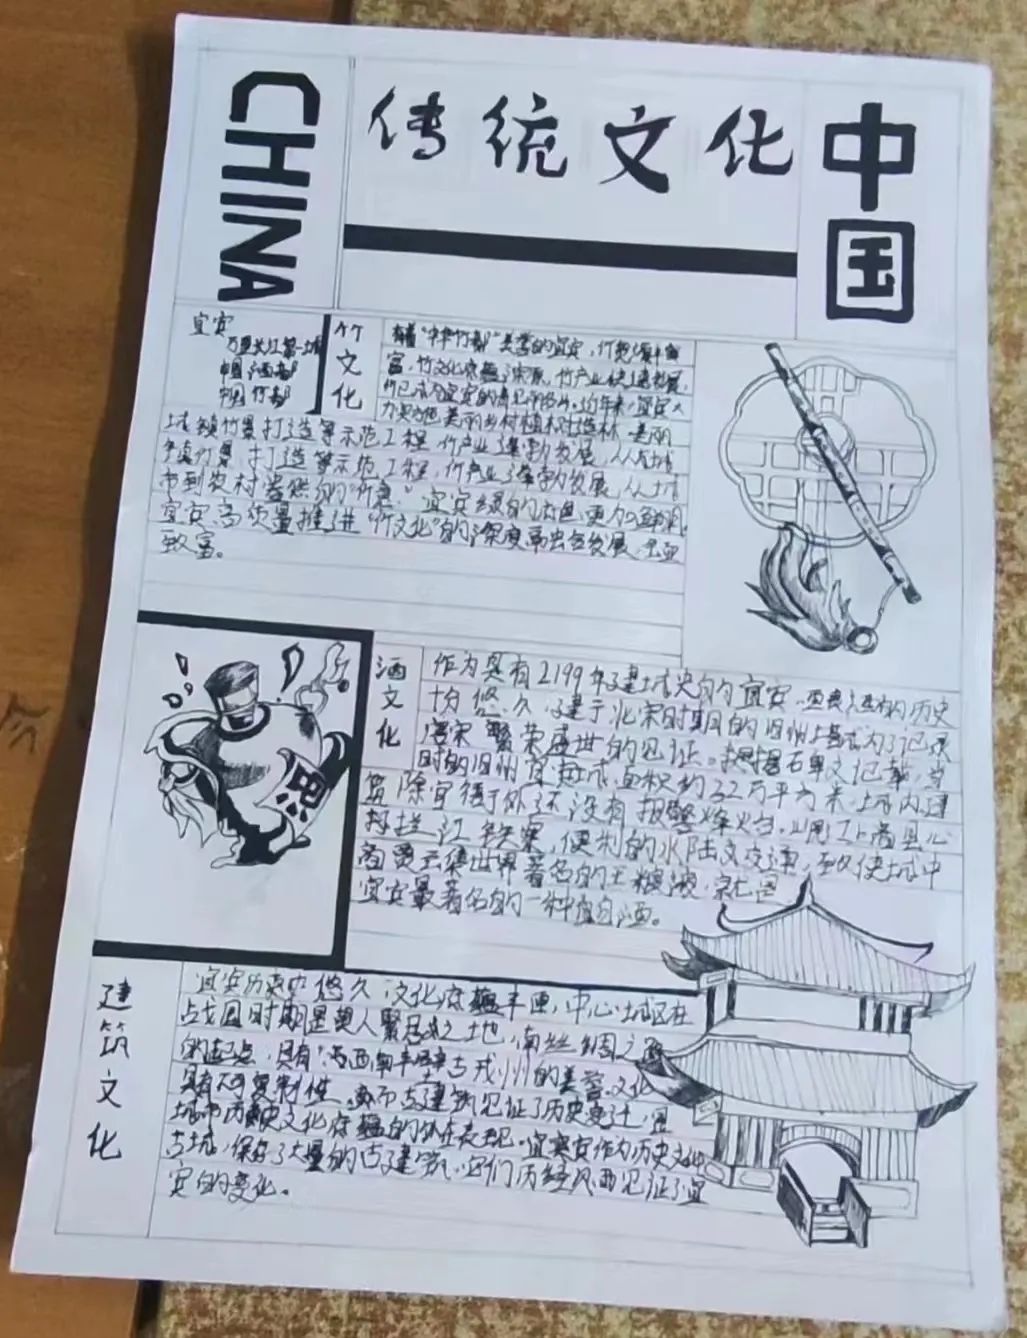 CHINA
传统文化
中国
宜宾
万里长江第一城
中国酒都
中国竹都
竹文化
有着"中华竹都"美誉的宜宾,竹资源丰富
富,竹文化底蕴深厚,竹产业快速发展,
竹已成为宜宾的 近年来,宜宾大
力 美丽乡村植树造林、美丽
城镇竹景打造等示范工程,竹产业蓬勃发展,从城
乡镇竹景打造等示范工程,竹产业蓬勃发展,从城
市到农村 的"竹 宜宾绿的 更加
宜宾高质量推进"竹文化"的深度 发展,
致富。
酒文化
作为具有2199年建城史的宜宾, 历史
十分悠久,建于北宋时期的旧州塔成为了记录
宋繁荣盛世的见证。根据石单文记载,当
时的旧州 城,面积约32万平方米,城内建
筑除官衙外还没有报警烽火台,
拦江铁索,便利的水陆交通,致使城中
商贾云集世界著名的五粮液,就是
宜宾最著名的一种白酒。
忠
建筑文化
宜宾历史悠久,文化底蕴丰厚,中心城区在
战国时期是僰人聚居之地,南丝绸之路
的起点,具有"西南半壁古戎州"的美誉。文化
具有不可复制性。 古建筑见证了历史变迁,是
城市历史文化底蕴的外在表现。宜宾作为历史文化
古城,保存了大量的古建筑,它们历经风雨见证了宜
宾的变化。